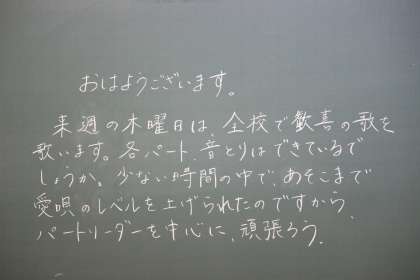 おはようございます。
来週の木曜日は、全校で歓喜の歌を
歌います。各パート、音とりはできているで
しょうか。少ない時間の中で、あそこまで
愛唄のレベルを上げられたのですから、
パートリーダーを中心に、頑張ろう。